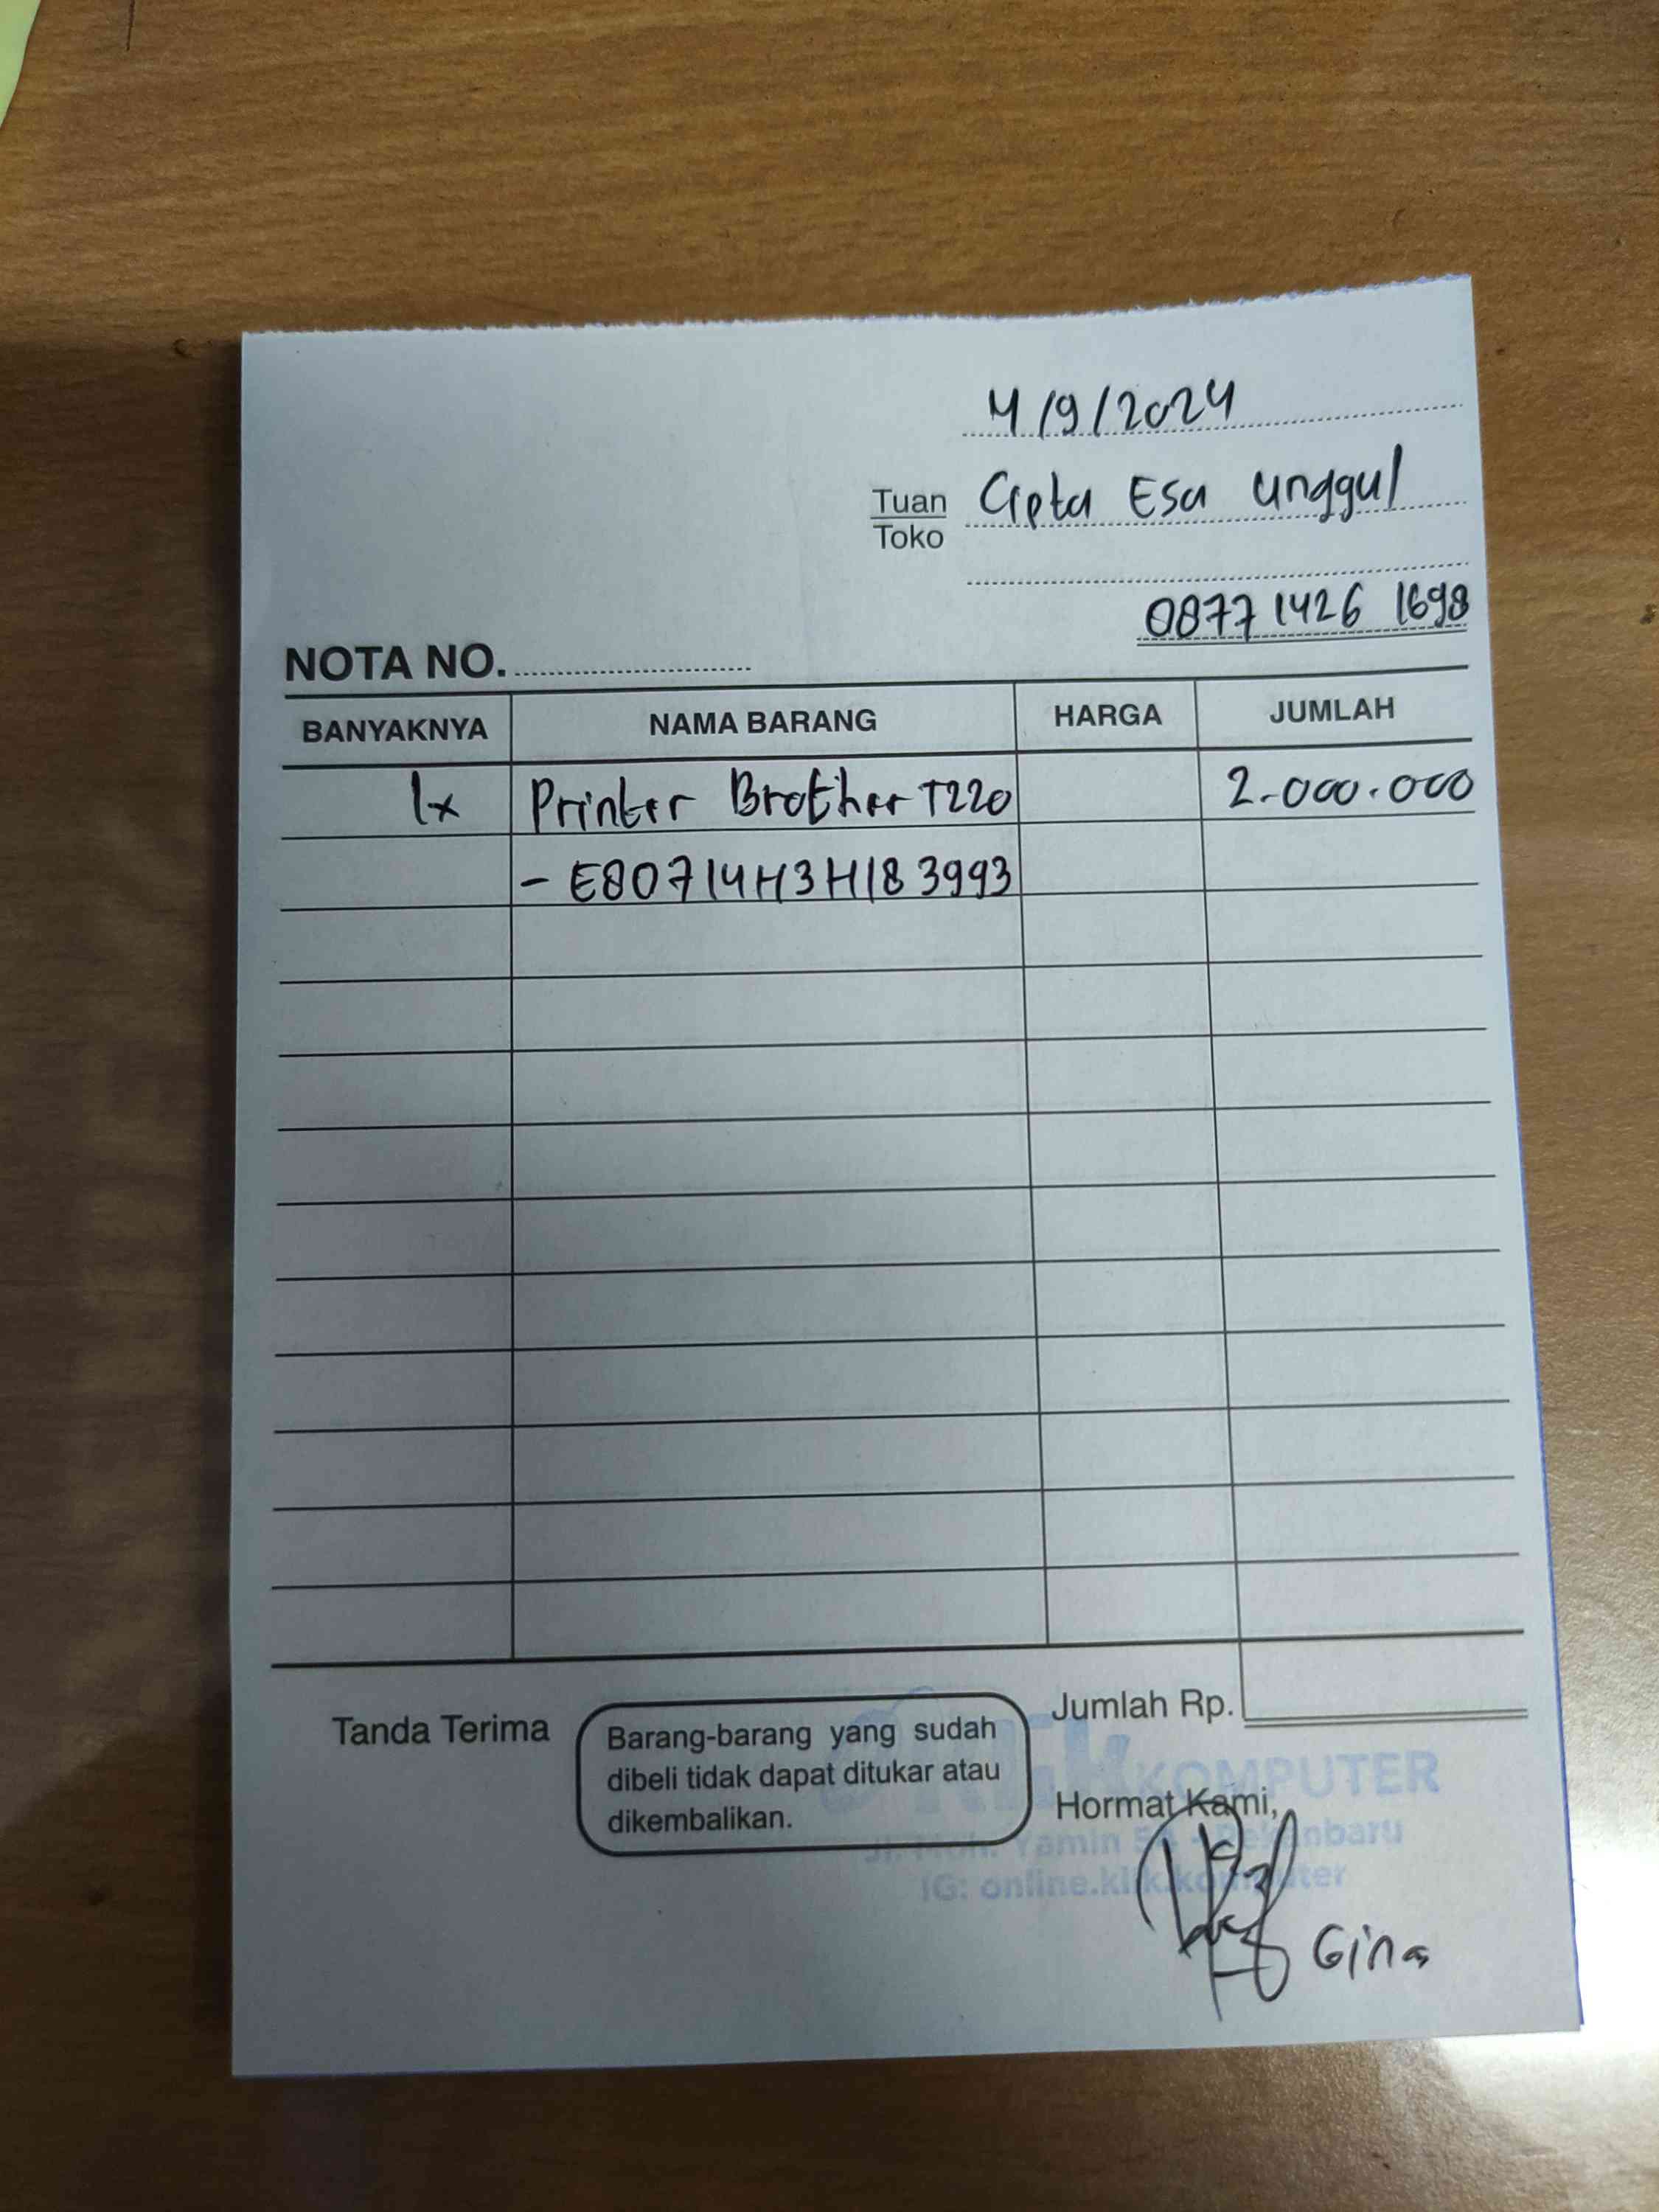 4/9/2024
Tuan Cipta Esa Unggul
Toko
0877 1426 1698
NOTA NO.
BANYAKNYA NAMA BARANG HARGA JUMLAH
1x Printer Brother T220 2.000.000
- E80714H3H183993
Tanda Terima
Barang-barang yang sudah
dibeli tidak dapat ditukar atau
dikembalikan.
Jumlah Rp.
klik KOMPUTER
Hormat Kami,
Jl. Moh. Yamin 54 - Pekanbaru
IG: online.klik.komputer
Gina